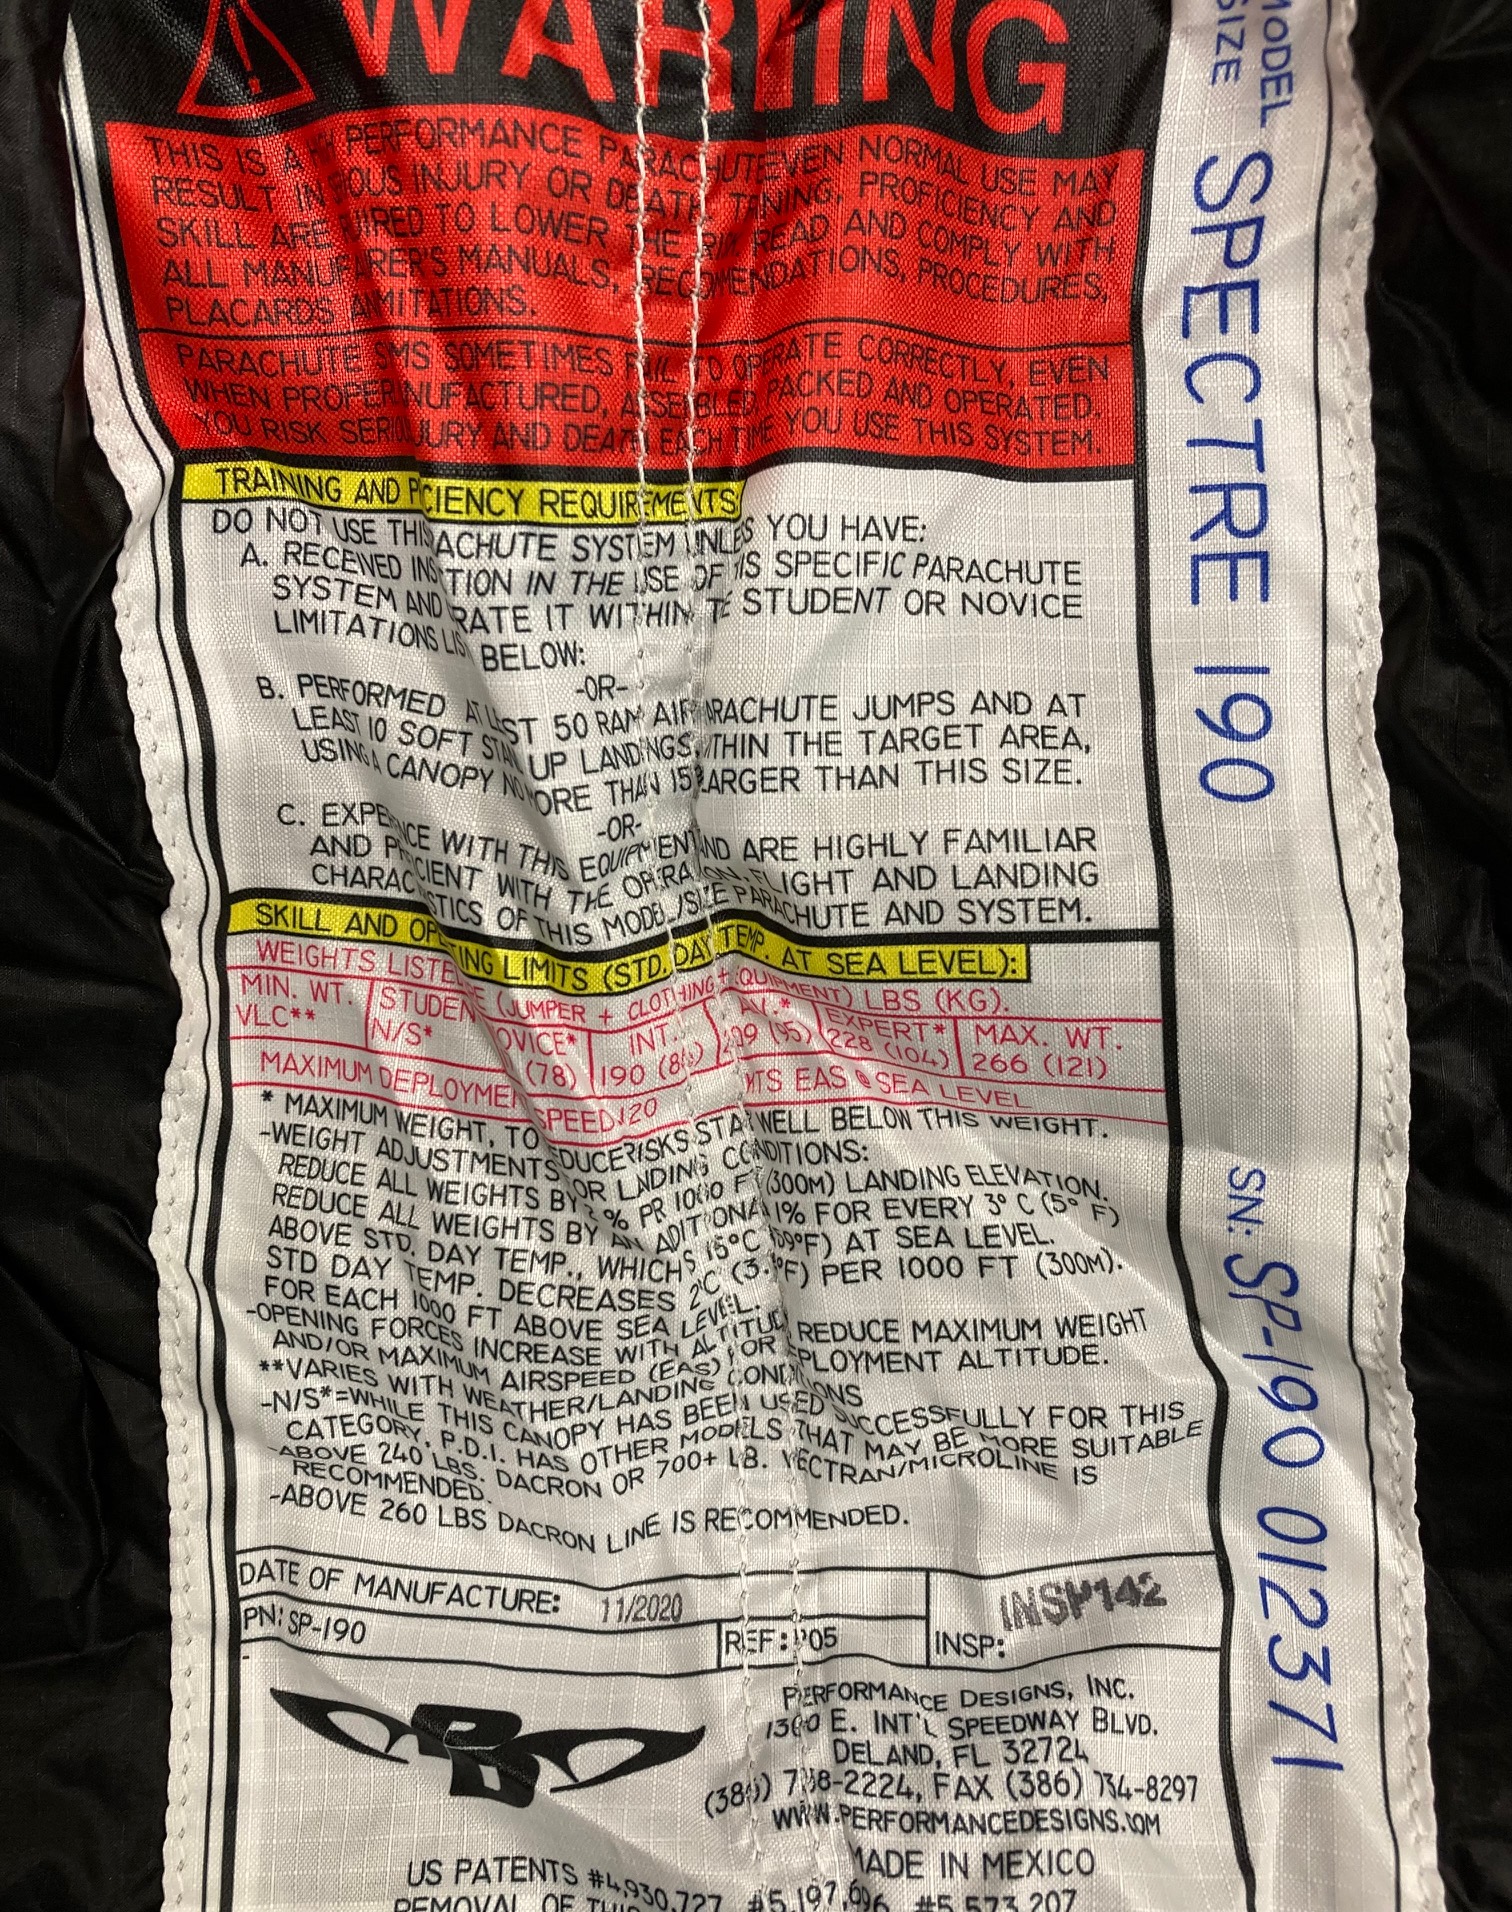 WARNING
THIS IS A PERFORMANCE PARACHUTE EVEN NORMAL USE MAY
RESULT IN INJURY OR DEATH. PROFICIENCY AND
SKILL ARE TO LOWER THE READ AND COMPLY WITH
ALL MANUALS, RECOMMENDATIONS, PROCEDURES,
PLACARDS
PARACHUTE SOMETIMES FAIL TO OPERATE CORRECTLY, EVEN
WHEN ASSEMBLED PACKED AND OPERATED.
YOU RISK AND DEATH EACH TIME YOU USE THIS SYSTEM.
TRAINING AND REQUIREMENTS
DO NOT USE THIS SYSTEM UNLESS YOU HAVE:
A. RECEIVED IN THE USE OF SPECIFIC PARACHUTE
SYSTEM AND IT WITHIN STUDENT OR NOVICE
LIMITATIONS BELOW:
-OR-
B. PERFORMED AT LEAST 50 RAM AIR PARACHUTE JUMPS AND AT
LEAST 10 SOFT STAND UP LANDINGS WITHIN THE TARGET AREA,
USING A CANOPY NO MORE THAN 15% LARGER THAN THIS SIZE.
-OR-
C. EXPERIENCE WITH THIS EQUIPMENT AND ARE HIGHLY FAMILIAR
AND WITH THE OPERATION, FLIGHT AND LANDING
CHARACTERISTICS OF THIS MODEL/SIZE PARACHUTE AND SYSTEM.
SKILL AND OPERATING LIMITS (STD. DAY TEMP. AT SEA LEVEL):
WEIGHTS LISTED (JUMPER + CLOTHING + EQUIPMENT) LBS (KG).
MIN. WT. STUDENT INT. EXPERT* MAX. WT.
VLC** N/S* (78) 190 228 (104) 266 (121)
MAXIMUM DEPLOYMENT SPEED 120 EAS @ SEA LEVEL
* MAXIMUM WEIGHT, TO REDUCE RISKS STAY WELL BELOW THIS WEIGHT.
-WEIGHT ADJUSTMENTS FOR LANDING CONDITIONS:
REDUCE ALL WEIGHTS BY % PER 1000 FT (300M) LANDING ELEVATION.
REDUCE ALL WEIGHTS BY AN ADDITIONAL 1% FOR EVERY 3° C (5° F)
ABOVE STD. DAY TEMP., WHICH IS 15°C (59°F) AT SEA LEVEL.
STD DAY TEMP. DECREASES 2°C PER 1000 FT (300M).
FOR EACH 1000 FT ABOVE SEA LEVEL.
-OPENING FORCES INCREASE WITH ALTITUDE. REDUCE MAXIMUM WEIGHT
AND/OR MAXIMUM AIRSPEED (EAS) FOR DEPLOYMENT ALTITUDE.
**VARIES WITH WEATHER/LANDING CONDITIONS
-N/S*=WHILE THIS CANOPY HAS BEEN USED SUCCESSFULLY FOR THIS
CATEGORY, P.D.I. HAS OTHER MODELS THAT MAY BE MORE SUITABLE
-ABOVE 240 LBS. DACRON OR 700+ LB. VECTRAN/MICROLINE IS
RECOMMENDED.
-ABOVE 260 LBS DACRON LINE IS RECOMMENDED.
DATE OF MANUFACTURE: 11/2020
PN: SP-190
REF:
INSP: INSP142
PERFORMANCE DESIGNS, INC.
1300 E. INT'L SPEEDWAY BLVD.
DELAND, FL 32724
(386) 738-2224, FAX (386) 734-8297
WWW.PERFORMANCEDESIGNS.COM
MADE IN MEXICO
US PATENTS #4,930,727 #5,197,696 #5,573,207
REMOVAL OF THIS
MODEL SPECTRE 190
SIZE
SN: SP-190 012371